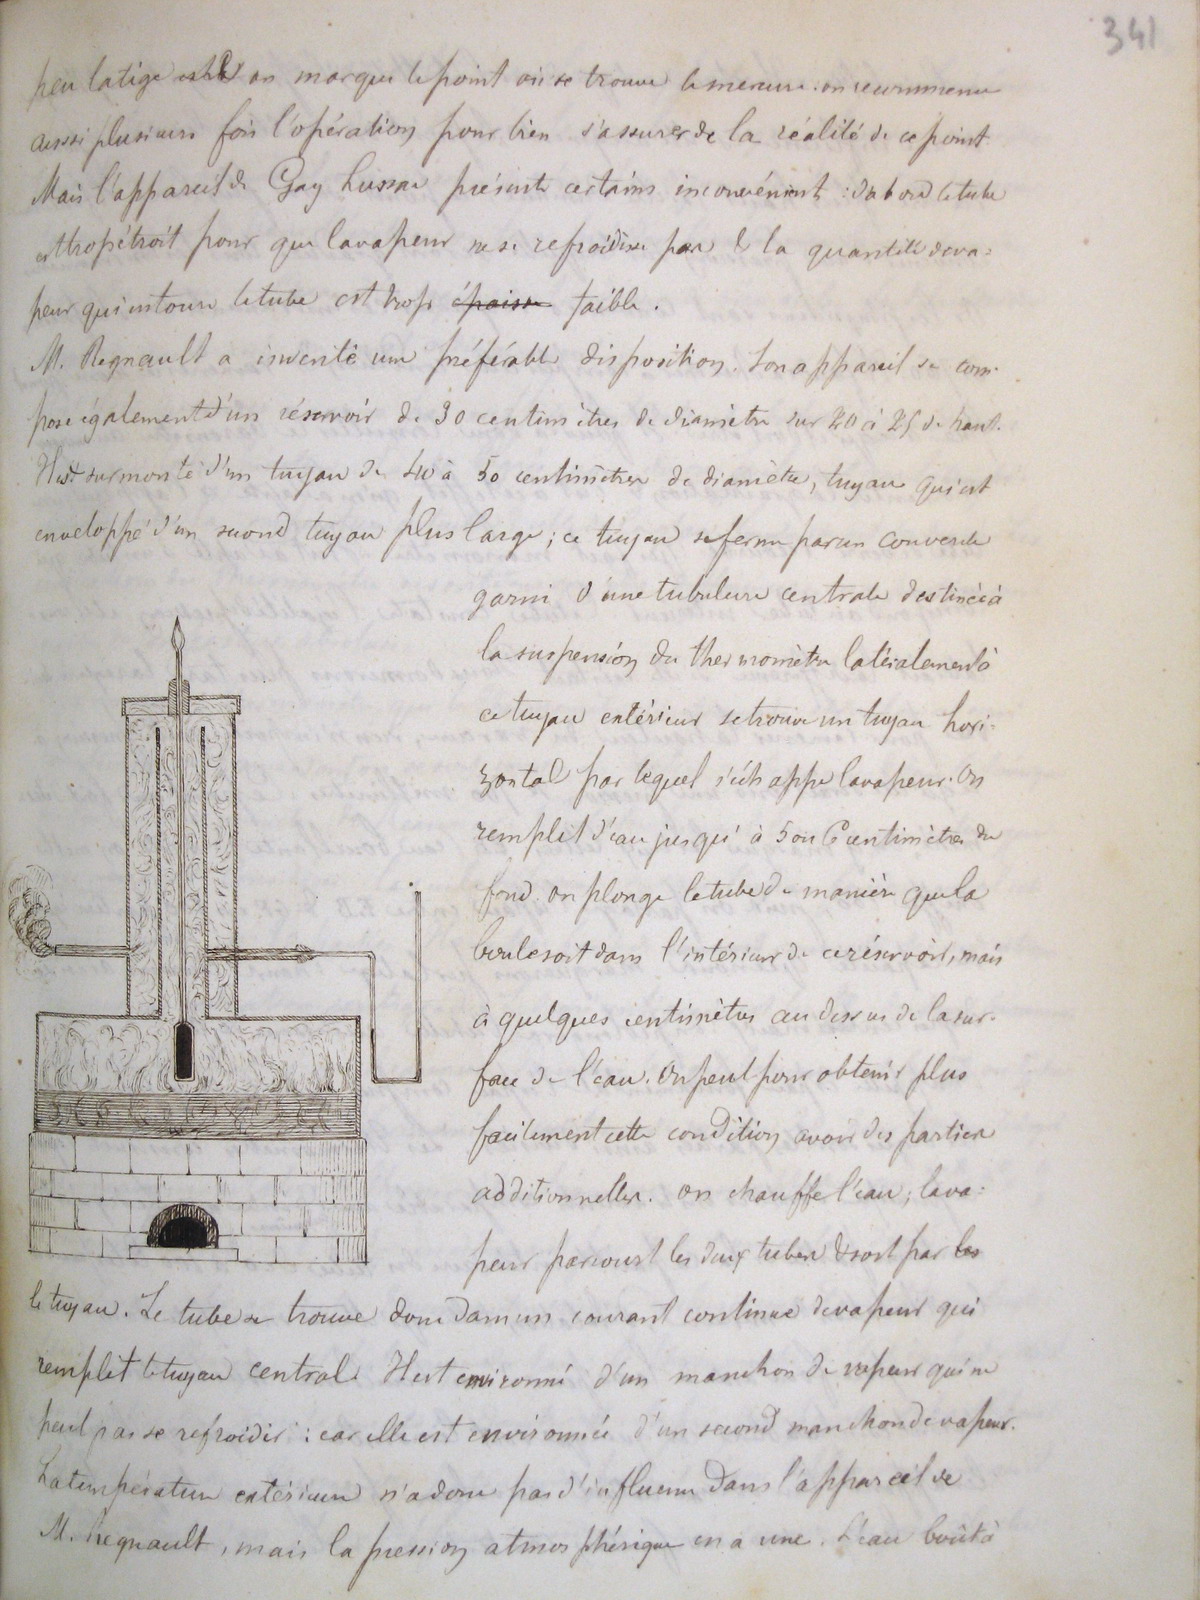 341
peu la tige et on marque le point où se trouve le mercure. on recommence
aussi plusieurs fois l'opération pour bien s'assurer de la réalité de ce point.
Mais l'appareil de Gay Lussac présente certains inconvénients : d'abord le tube
est trop étroit pour que la vapeur ne se refroidisse pas & la quantité de va-
peur qui entoure le tube est trop épaisse faible.
M. Regnault a inventé une préférable disposition. Son appareil se com-
pose également d'un réservoir de 30 centimètres de diamètre sur 20 à 25 de haut.
Il est surmonté d'un tuyau de 40 à 50 centimètres de diamètre, tuyau qui est
enveloppé d'un second tuyau plus large ; ce tuyau se ferme par un couvercle
garni d'une tubulure centrale destinée à
la suspension du thermomètre latéralement à
ce tuyau extérieur se trouve un tuyau hori-
zontal par lequel s'échappe la vapeur. On
remplit d'eau jusqu'à 5 ou 6 centimètres du
fond. on plonge le tube de manière que la
boule soit dans l'intérieur de ce réservoir, mais
à quelques centimètres au dessus de la sur-
face de l'eau. On peut pour obtenir plus
facilement cette condition avoir des parties
additionnelles. on chauffe l'eau, la va-
peur parcourt les deux tubes & sort par les
le tuyau. Le tube se trouve donc dans un courant continue de vapeur qui
remplit le tuyau central. Il est environné d'un manchon de vapeur qui ne
peut pas se refroidir : car elle est environnée d'un second manchon de vapeur.
La température extérieure n'a donc pas d'influence dans l'appareil de
M. Regnault, mais la pression atmosphérique en a une. L'eau bout à